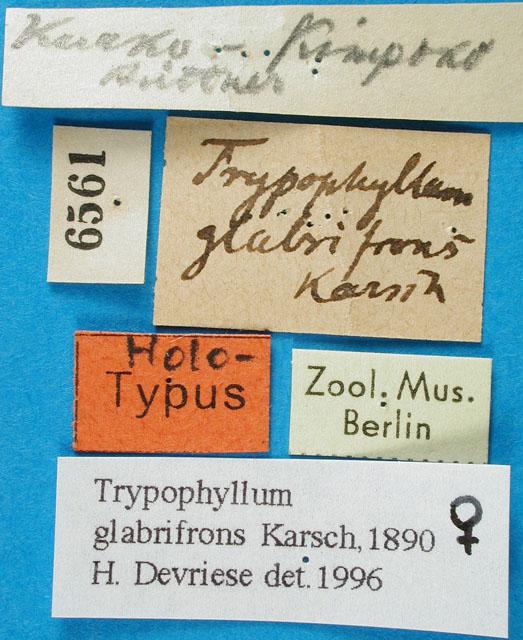 Kuako - Kimpoko
Büttner
6561
Trypophyllum
glabrifrons
Karsch
Holo-
Typus
Zool. Mus.
Berlin
Trypophyllum
glabrifrons Karsch, 1890 ♀
H. Devriese det. 1996